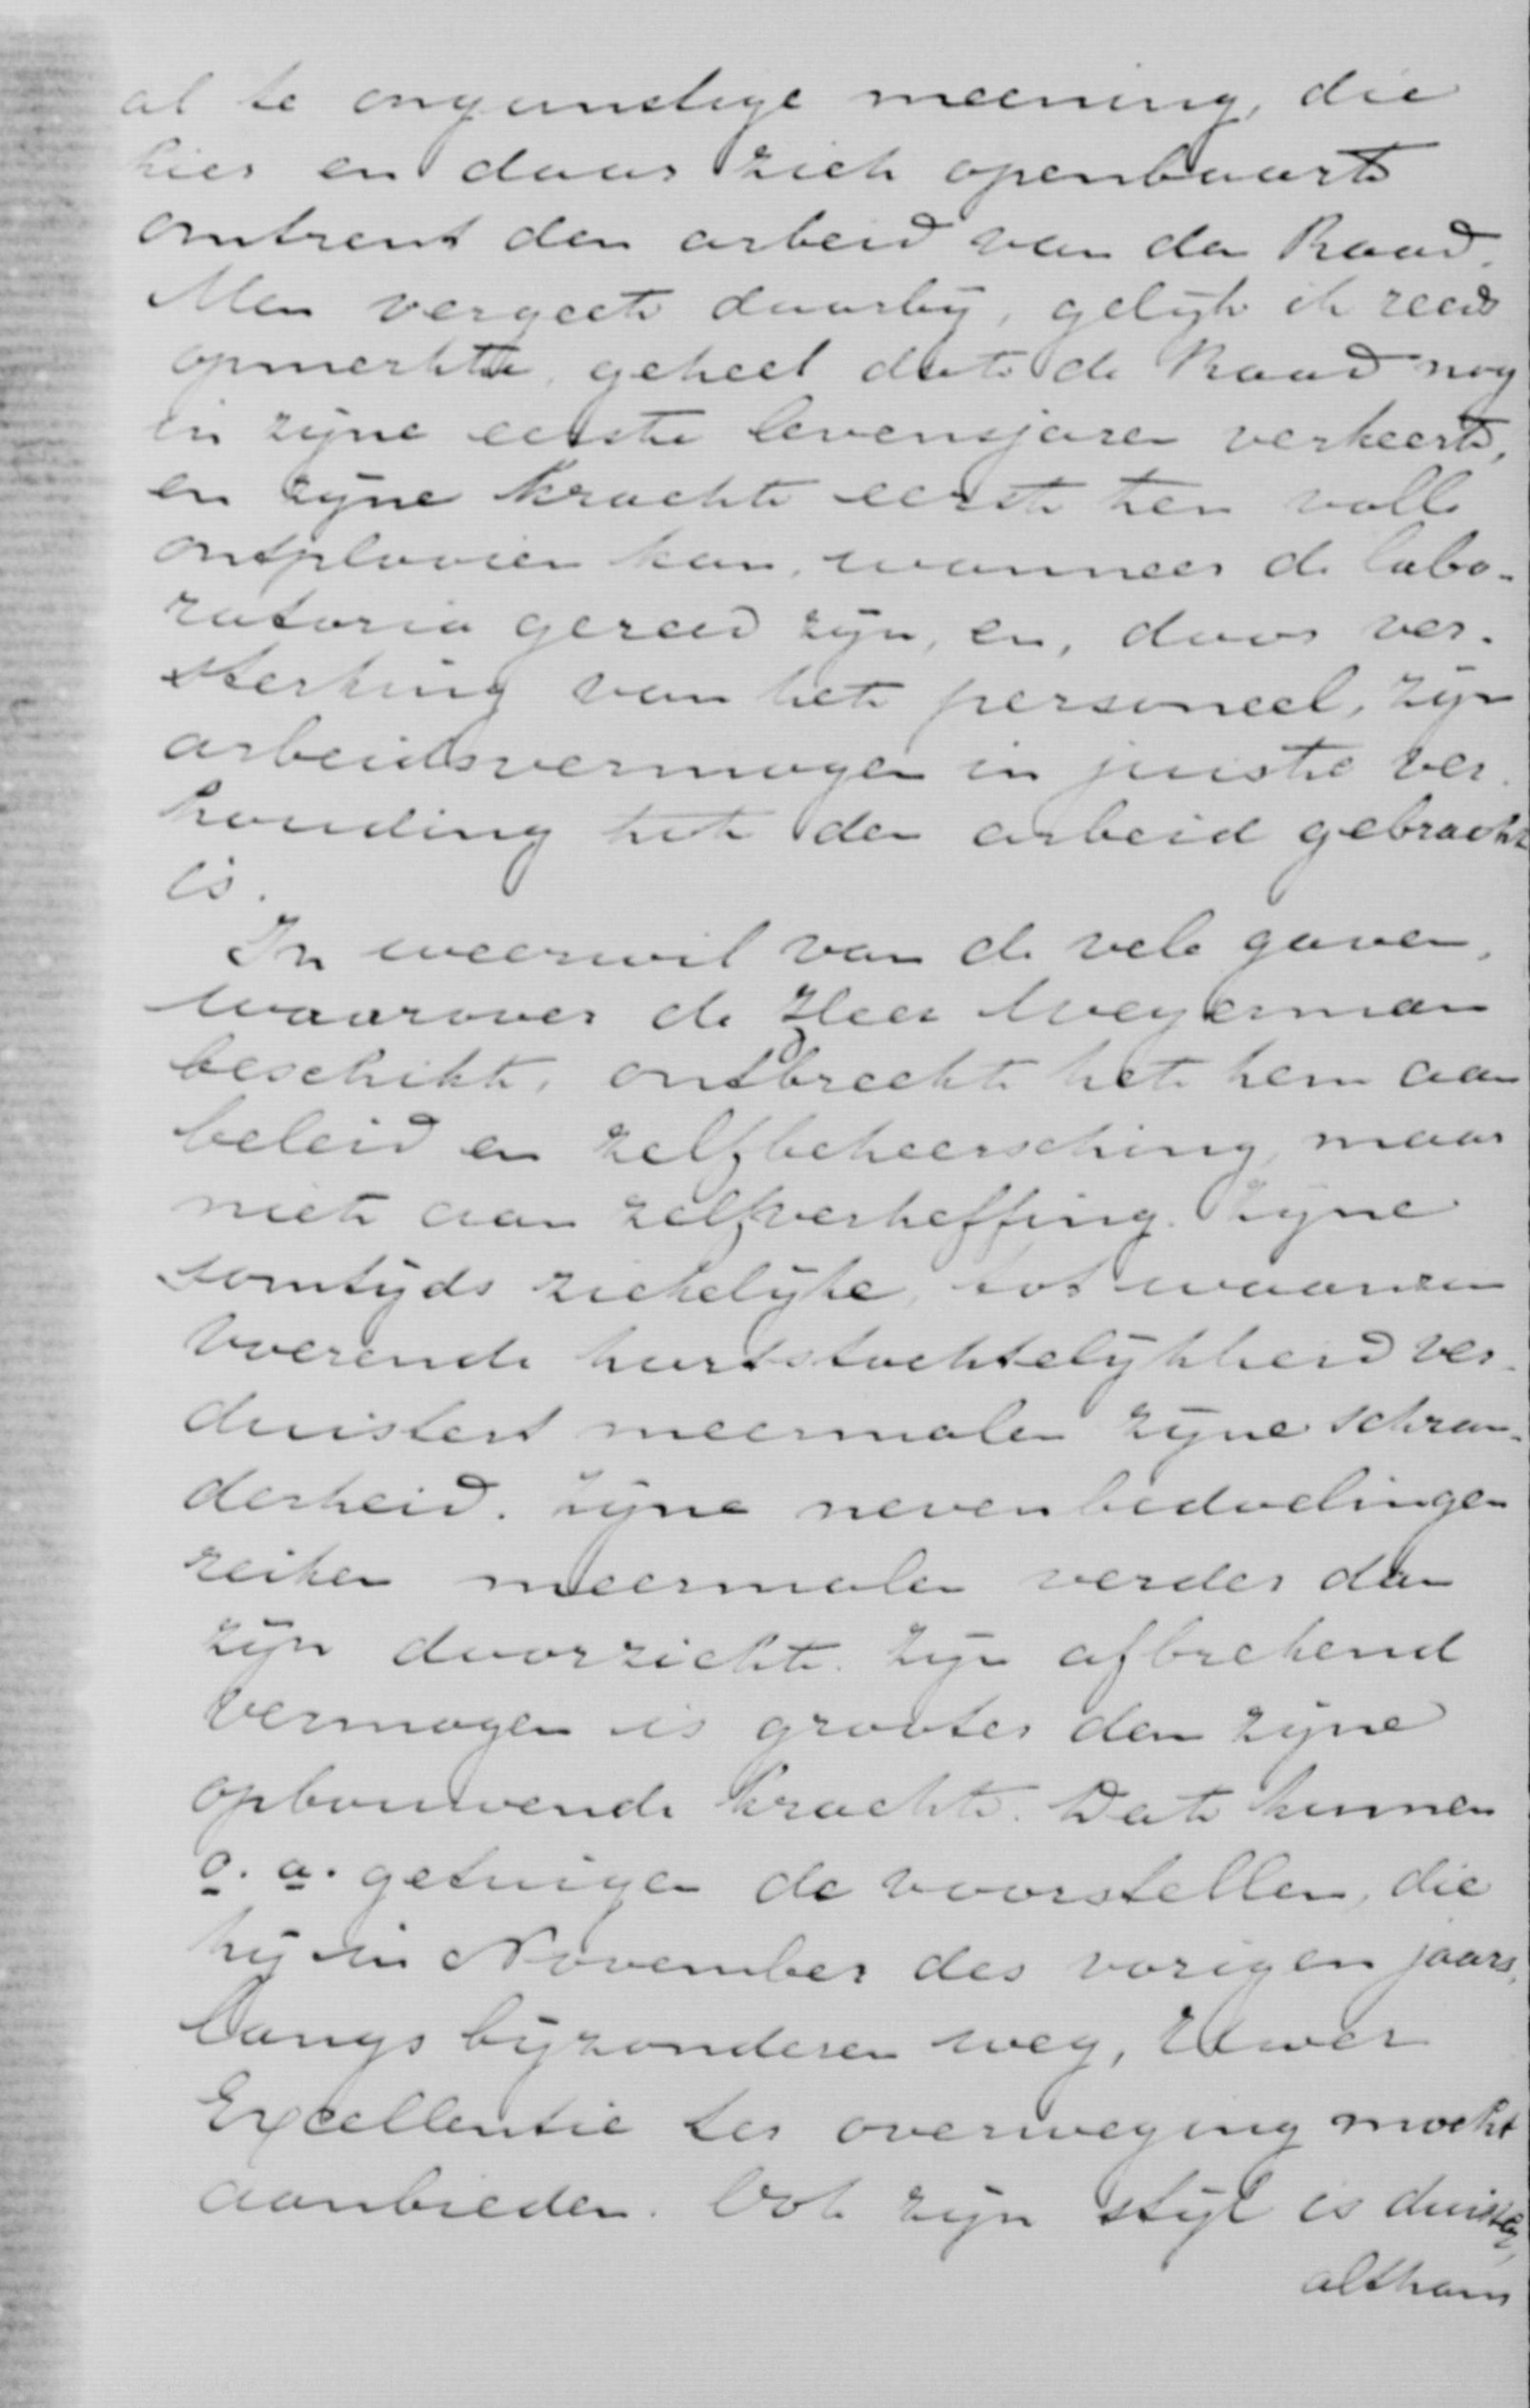 al te ongunstige meening, die
hier en daar zich openbaart
omtrent den arbeid van den Raad.
Men vergeet daarbij, gelijk ik reeds
opmerkte, geheel dat de Raad nog
in zijne eerste levensjaren verkeert,
en zijne kracht eerst ten volle
ontplooien kan, wanneer de labo-
ratoria gereed zijn, en, door ver-
sterking van het personeel, zijn
arbeidsvermogen in juiste ver-
houding tot den arbeid gebracht
is.
In weerwil van de vele gaven,
waarover de Heer Weyerman
beschikt, ontbreekt het hem aan
beleid en zelfbeheersching, maar
niet aan zelfverheffing. Zijne
somtijds ziekelijke, tot waanzin
voerende hartstochtelijkheid ver-
duistert meermalen zijne schran-
derheid. Zijne nevenbedoelingen
reiken meermalen verder dan
zijn doorzicht. Zijn afbrekend
vermogen is grooter dan zijne
opbouwende kracht. Dat kunnen
o.a. getuigen de voorstellen, die
hij in November des vorigen jaars,
langs bijzonderen weg, Uwer
Excellentie ter overweging mocht
aanbieden. Ook zijn stijl is duister,
althans